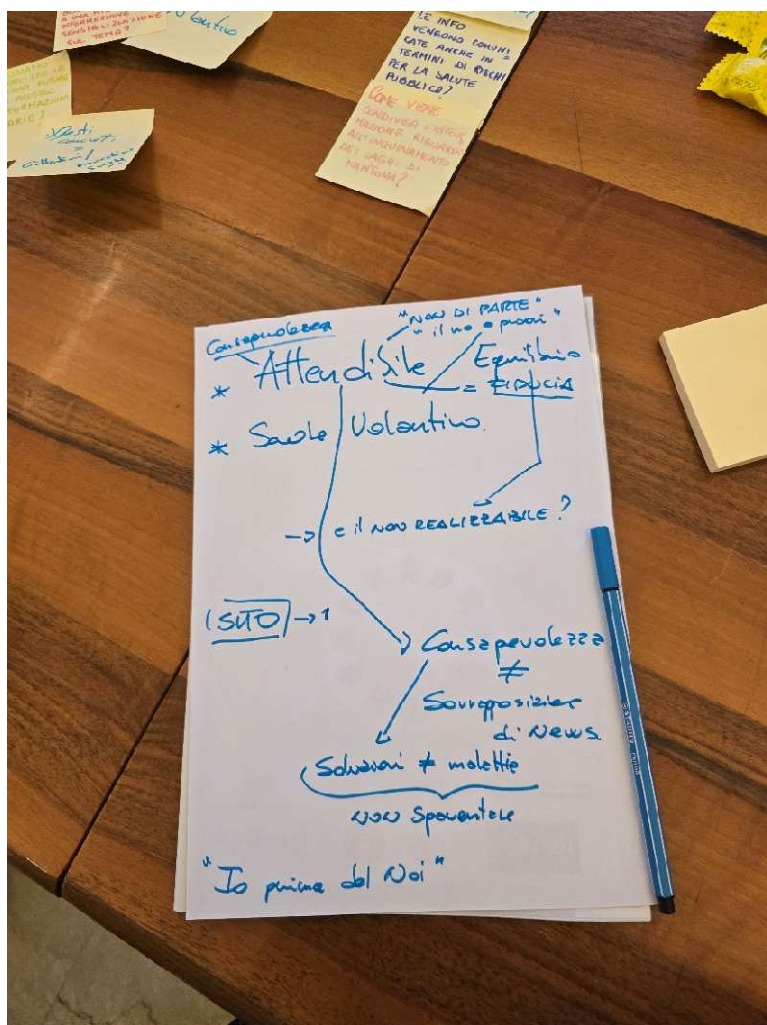 INFORMAZIONE
SENSIBILIZZAZIONE
SUL TEMA?
volantino
LE INFO
VENGONO COMUNI
CATE ANCHE IN
TERMINI DI RISCHI
PER LA SALUTE
PUBBLICA?
COME VIENE
CONDIVISA
INFOR
MAZIONE RIGUARDO
ALL'INQUINAMENTO
DEI LAGHI DI
MANTOVA?
Consapevolezza
"NON DI PARTE"
"il no a priori"
* Attendibile
Equilibrio
= FIDUCIA
* Scuole
Volantino
-> e il NON REALIZZABILE?
(SITO) -> 1
Consapevolezza
≠
Sovrapposizione
di News
Soluzioni ≠ malattie
NON Spaventare
"Io prima del Noi"